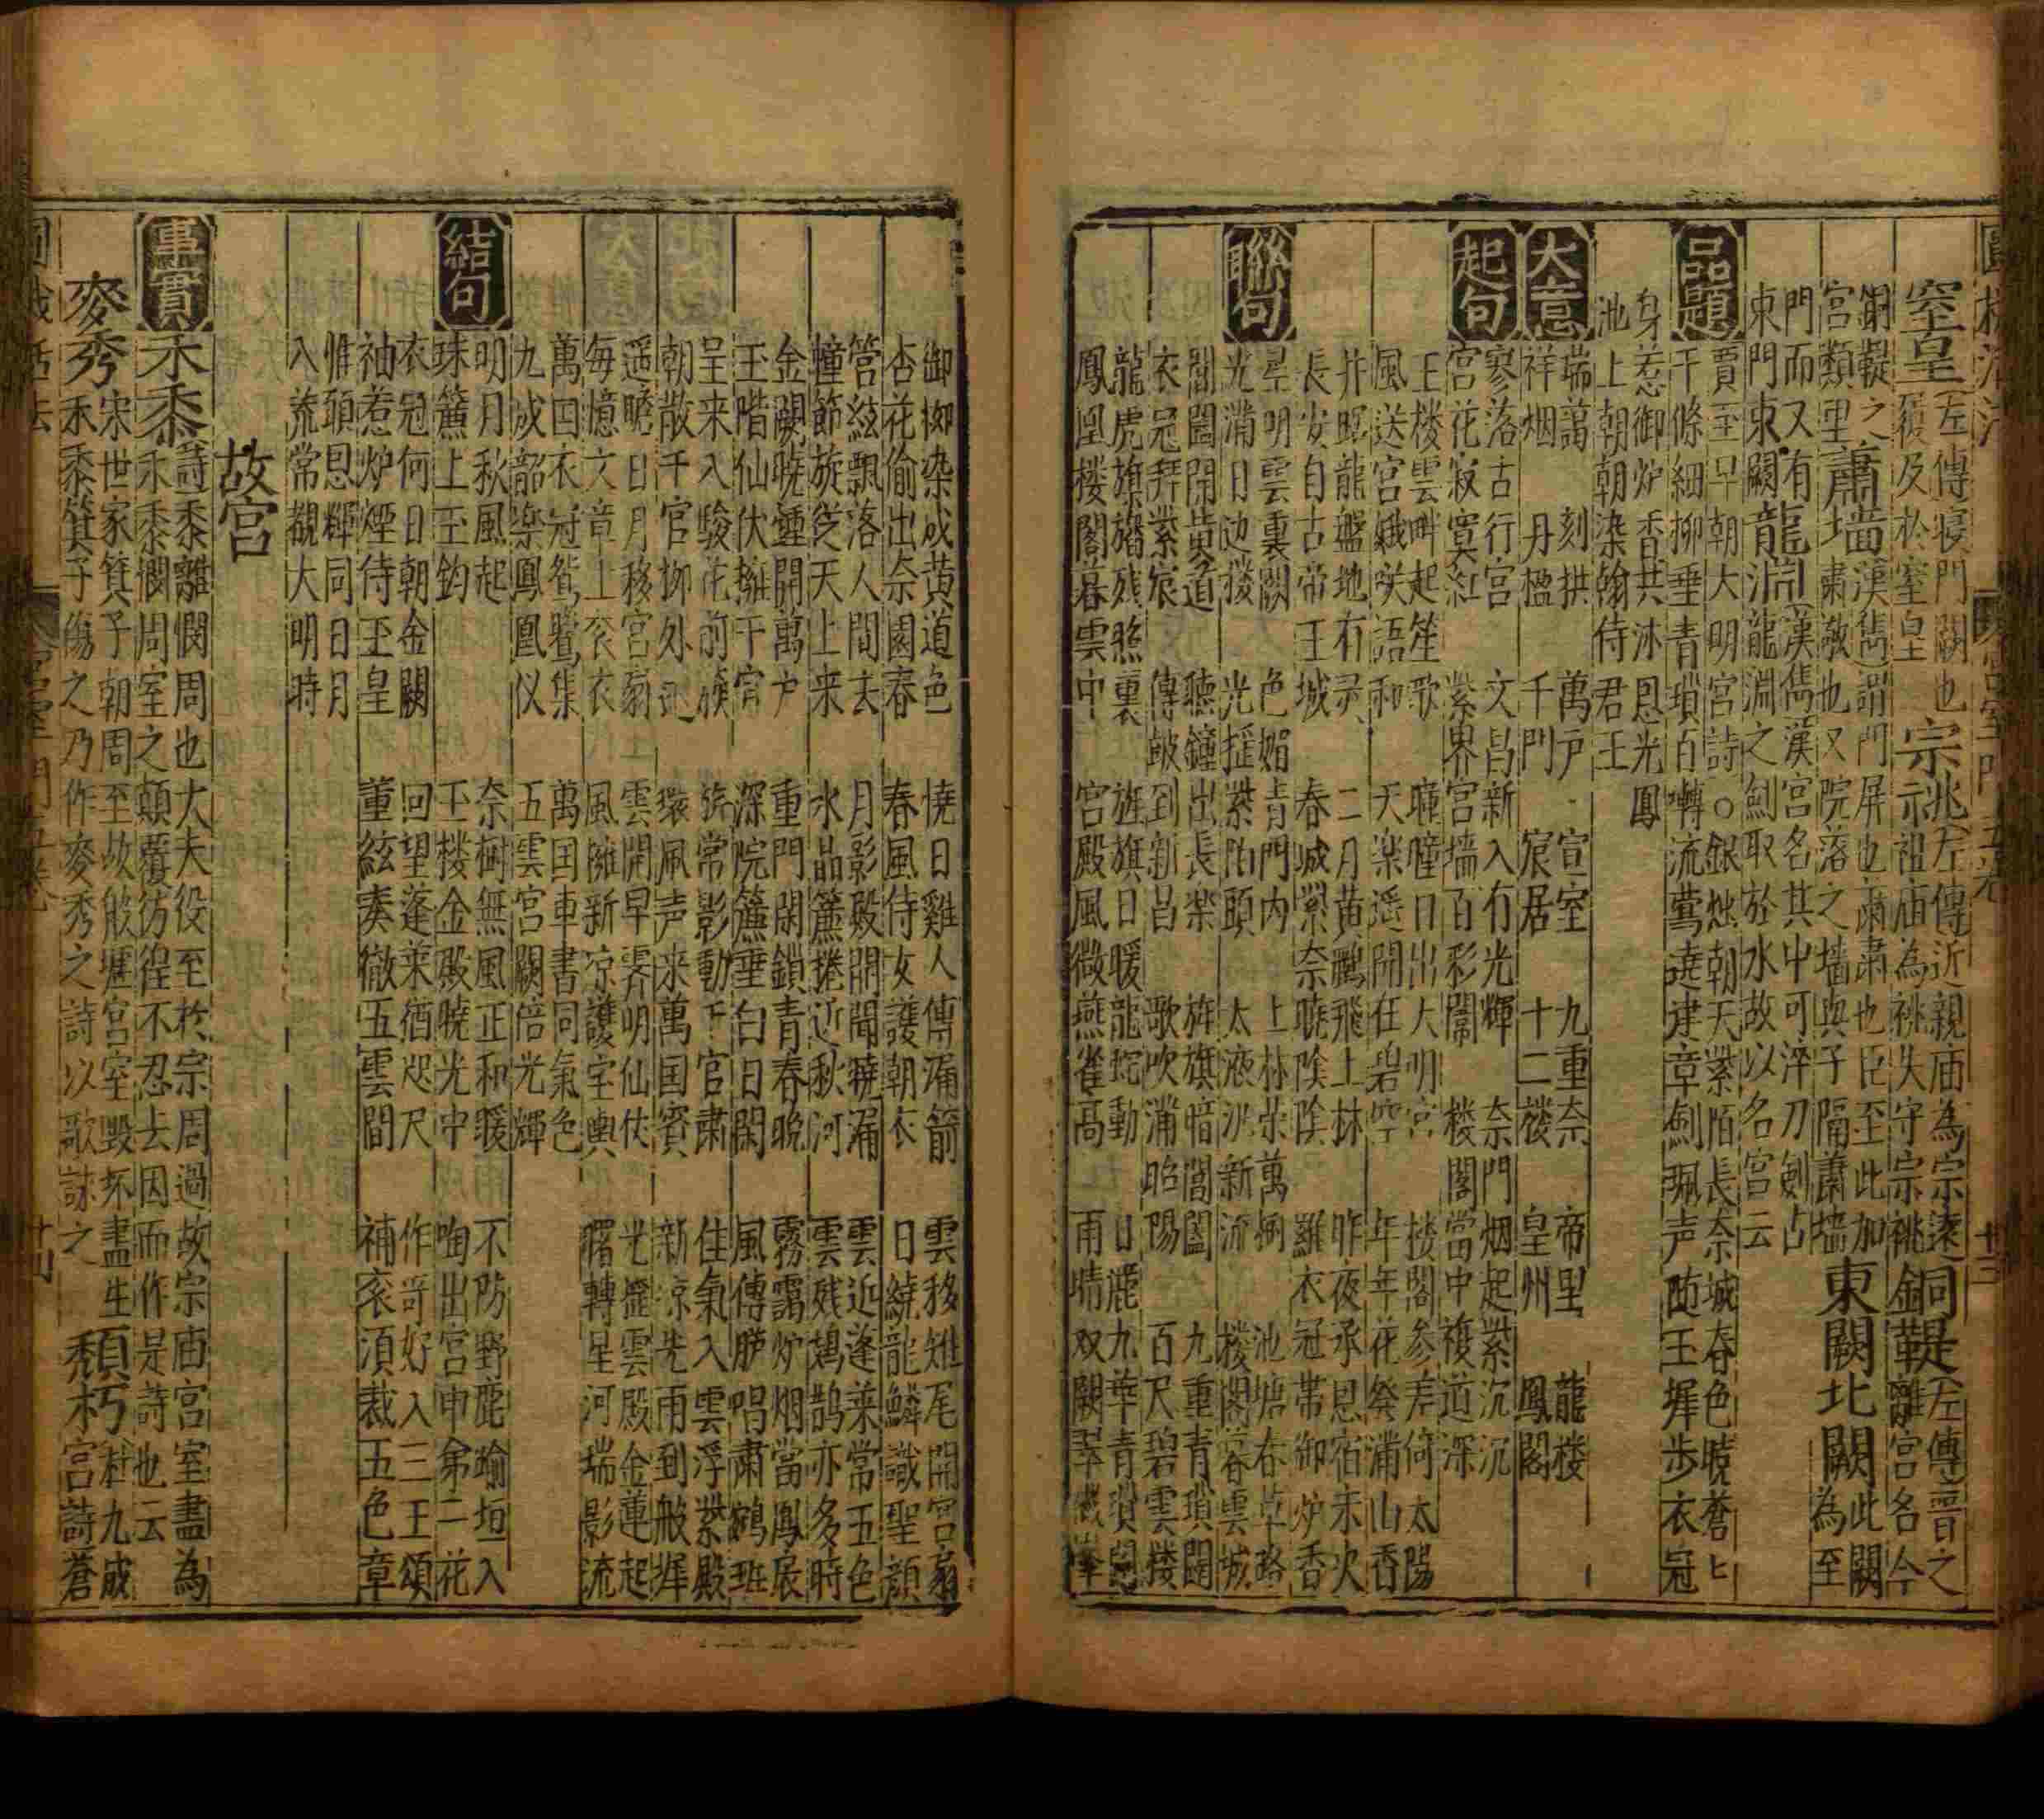 窒皇 左傳寢門闕也 宗祧 左傳近親庙為宗遠 銅鞮 左傳晋之
屨及於窒皇 示祖庙為祧失守宗祧 離宮各今
銅鞮之 蕭墙 漢雋謂門屏也蕭肅也臣至此加 東闕北闕 此闕
宮類里 肅敬也又院落之墙與子隔蕭墙 為至
門而又有 龍淵 漢雋漢宮名其中可淬刀劍占
東門東闕 龍淵之劍取於水故以名宮云
品題 賈至早朝大明宮詩○銀燭朝天紫陌長奈城春色曉蒼匕
千條細柳垂青瑣百囀流鶯遶建章劍珮声随玉墀步衣冠
身惹御炉香共沐恩光鳳
池上朝朝染翰侍君王
大意 瑞藹 刻拱 萬户 宣室 九重奈 帝里 龍楼
祥烟 丹楹 千門 宸居 十二楼 皇州 鳳閣
起句 寥落古行宮 文昌新入有光輝 奈門烟起紫沉沉
宮花寂寞紅 紫界宮墙百彩闈 楼閣當中複道深
王楼雲畔起笙歌 曈曈日出大明宮 楼閣参差倚太陽
風送宮娥咲語和 天楽遥聞在碧空 年年花發滿山香
井 龍盤地有灵 二月黄鸝飛上林 昨夜承恩宿未次
長安自古帝王城 春城紫奈曉陰陰 羅衣冠帯御炉香
聯句 星明雲裏闕 色媚青門内 上林栄萬樹 池塘春草路
光滿日边楼 光揺紫陌頭 太液泒新流 楼閣暮雲城
閶闔開黄道 聽鐘出長楽 旌旗暗閶闔 九重青瑣闥
衣冠拜紫宸 傳皷到新昌 歌吹滿昭陽 百尺碧雲楼
龍虎旗旛残照裏 旌旗日暖龍蛇動 日麗九華青瑣闥
鳳凰楼閣暮雲中 宮殿風微燕雀高 雨晴双闕翠微峯
御柳染成黄道色 曉日雞人傳漏箭 雲移雉尾開宮扇
杏花偷出奈園春 春風侍女護朝衣 日繞龍鱗識聖顔
筦絃飄落人間去 月影殿開聞曉漏 雲近蓬萊常五色
幢節旋從天上来 水晶簾捲近秋河 雲残鳷鹊亦多時
金闕曉鍾開萬户 重門閑鎖青春晚 霧靄炉烟當鳳扆
玉階仙仗擁千官 深院簾垂白日閑 風傳臚唱肅鵷班
呈来入駿花前 旂常影動千官肅 住氣入雲浮紫殿
朝散千官柳外 環珮声来萬国賓 新凉先雨到彤墀
遥瞻日月移宮扇 雲開早霽明仙仗 光 雲殿金蓮起
每憶文章上衮衣 風擁新凉護室輿 曙轉星河瑞影流
萬囯衣冠鴛鷺集 萬囯車書同氣色
九成韶楽鳳凰仪 五雲宮闕倍光輝
結句 明月秋風起 奈樹無風正和暖 不防野鹿踰垣入
珠簾上玉鈎 玉楼金殿曉光中 啣出宮中第二花
衣冠何日朝金闕 回望蓬莱猶咫尺 作哥好入三王頌
袖惹炉煙侍玉皇 董絃奏徹五雲間 補衮須裁五色章
惟頭恩輝同日月
入荒常覩大明時
故宮
事實 禾黍 詩黍離憫周也大夫役至於宗周過故宗庙宮室盡為
禾黍憫周室之顛覆彷徨不忍去因而作是詩也云
麥秀 宋世家箕子朝周至故殷墟宮室毀坏盡生 頹朽 杜九成
禾黍箕子傷之乃作麥秀之詩以歌詠之 宮詩蒼
宮室門五卷
廿四